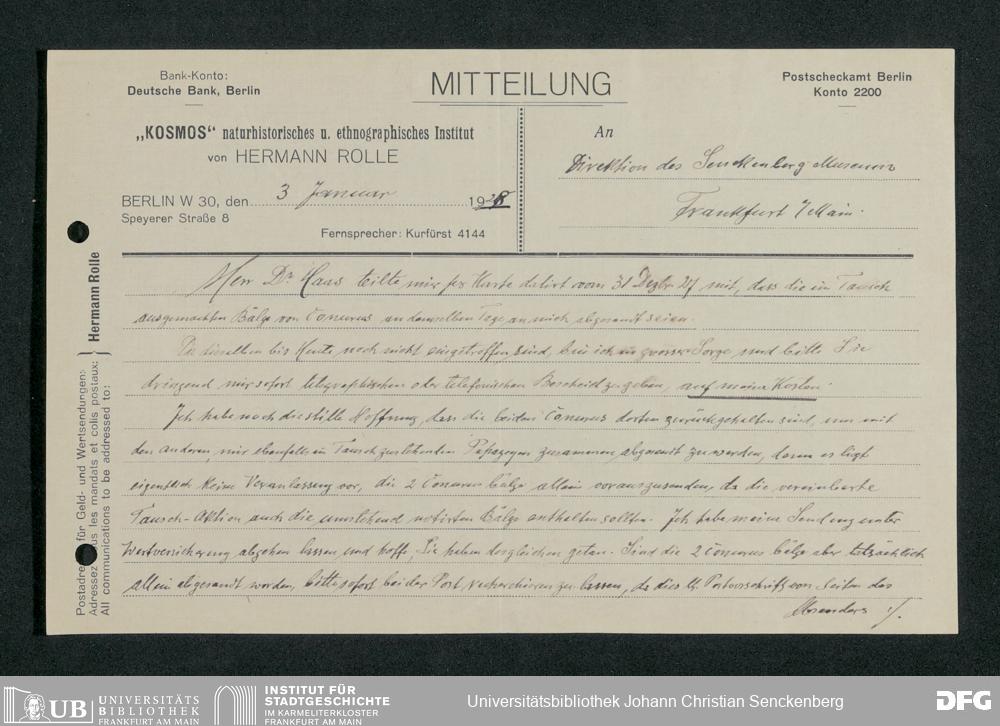 Bank-Konto:
Deutsche Bank, Berlin
MITTEILUNG
Postscheckamt Berlin
Konto 2200
„KOSMOS“ naturhistorisches u. ethnographisches Institut
von HERMANN ROLLE
An
Direktion des Senckenberg-Museums
BERLIN W 30, den 3 Januar 1928
Speyerer Straße 8
Frankfurt /Main.
Fernsprecher: Kurfürst 4144
Postadresse für Geld- und Wertsendungen:
Adressez tous les mandats et colis postaux:
All communications to be addressed to:
Hermann Rolle
Herr Dr Haas teilte mir per Karte datirt vom 31 Dezbr 27 mit, dass die im Tausch
ausgemachten Bälge von Conurus an demselben Tage an mich abgesandt seien.
Da dieselben bis Heute noch nicht eingetroffen sind, bin ich in grosser Sorge und bitte Sie
dringend mir sofort telegraphischen oder telefonischen Bescheid zu geben, auf meine Kosten.
Ich habe noch die stille Hoffnung, dass die beiden Conurus dorten zurückgehalten sind, um mit
den anderen, mir ebenfalls im Tausch zustehenden Papageyen zusammen abgesandt zu werden, denn es liegt
eigentlich keine Veranlassung vor, die 2 Conurus Bälge allein vorauszusenden, da die vereinbarte
Tausch-Aktion auch die umstehend notirten Bälge enthalten sollte. Ich habe meine Sendung unter
Wertversicherung abgehen lassen und hoffe, Sie haben desgleichen getan. Sind die 2 Conurus Bälge aber tatsächlich
allein abgesandt worden, bitte sofort bei der Post recherchieren zu lassen, da dies lt. Postvorschrift von Seiten des
Absenders ./.
UB UNIVERSITÄTS
BIBLIOTHEK
FRANKFURT AM MAIN
INSTITUT FÜR
STADTGESCHICHTE
IM KARMELITERKLOSTER
FRANKFURT AM MAIN
Universitätsbibliothek Johann Christian Senckenberg
DFG